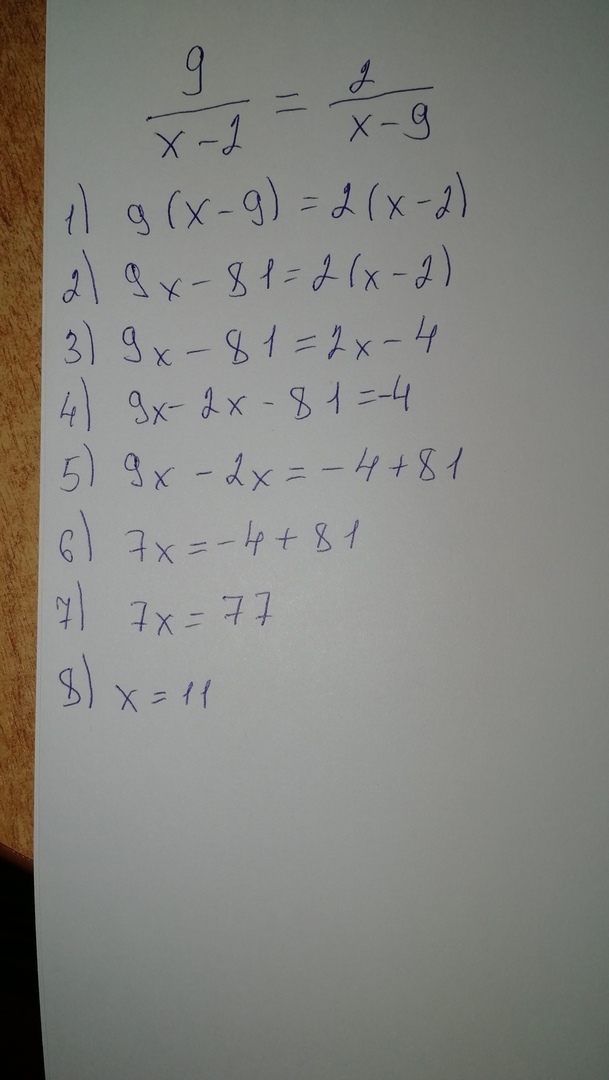 9/(x-2) = 2/(x-9)
1) 9(x-9)=2(x-2)
2) 9x-81=2(x-2)
3) 9x-81=2x-4
4) 9x-2x-81=-4
5) 9x-2x=-4+81
6) 7x=-4+81
7) 7x=77
8) x=11